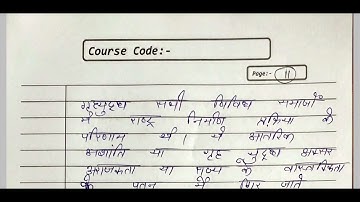 Course Code:-
Page:- 11
गृहयुद्ध सभी विविध समाजों
में राष्ट्र निर्माण प्रक्रिया के
परिणाम थे। ये आंतरिक
अशांति या गृह युद्ध अक्सर
अराजकता या राज्य के वास्तविकता
के पतन में गिर जाते